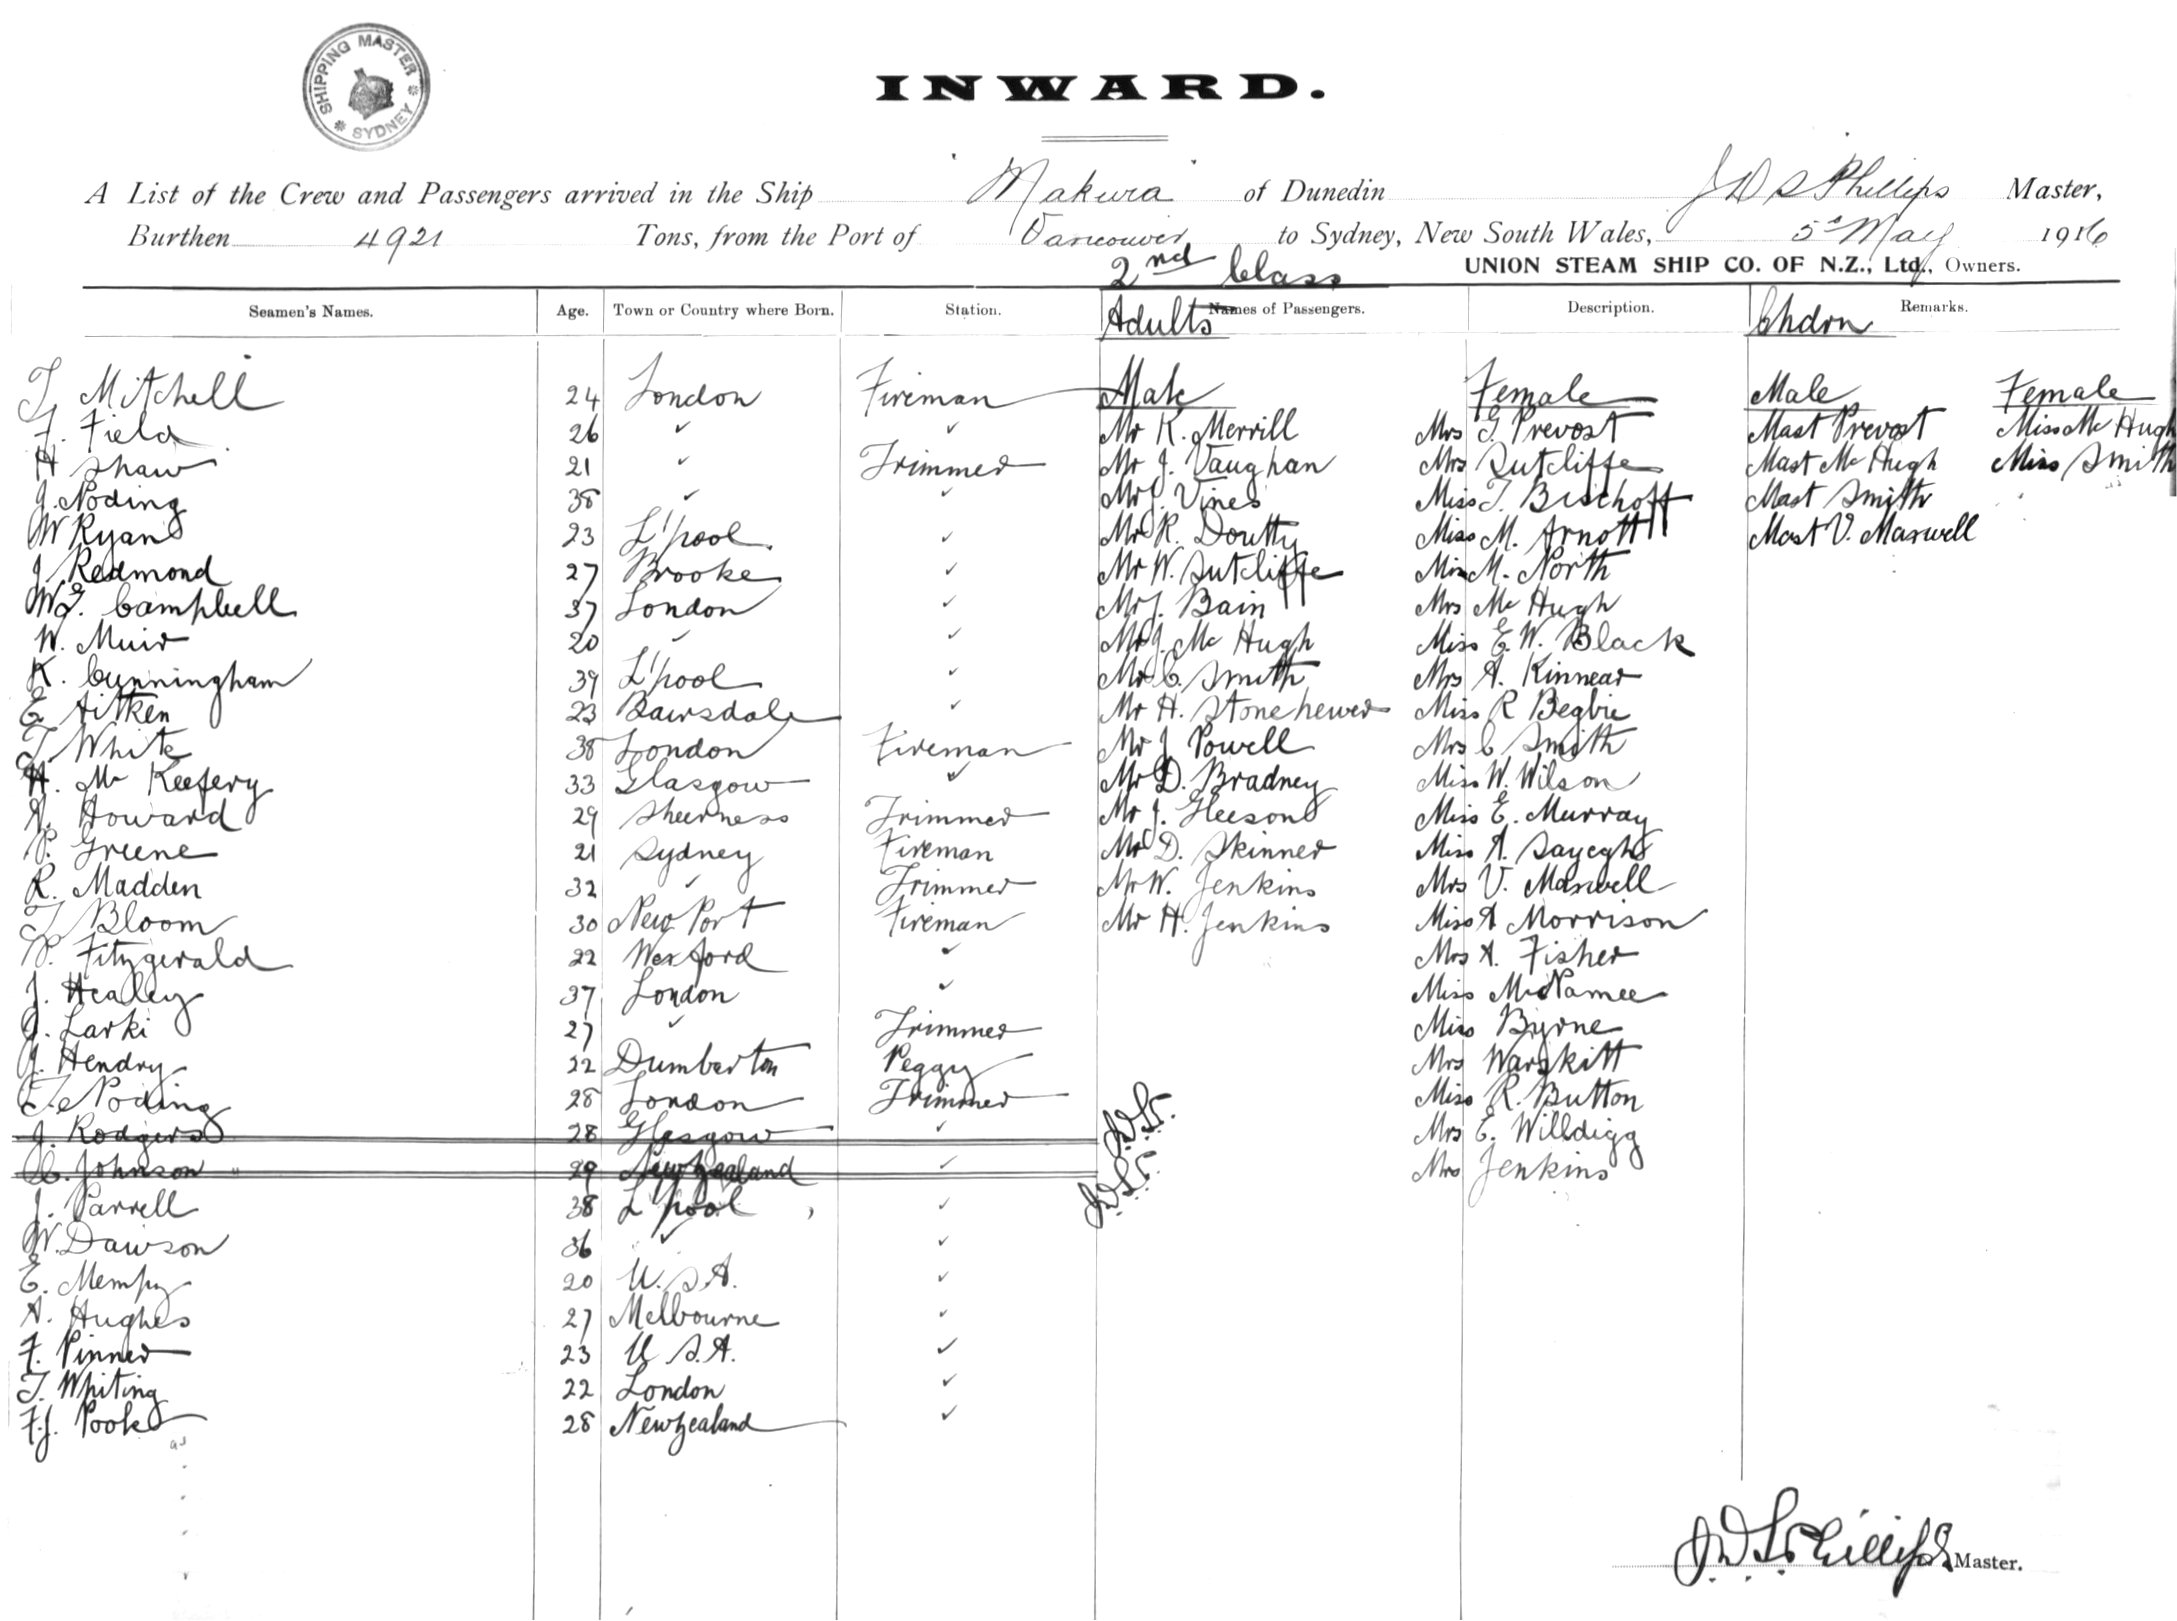 SHIPPING MASTER
SYDNEY
INWARD.
A List of the Crew and Passengers arrived in the Ship Makura of Dunedin J D S Phillips Master,
Burthen 4921 Tons, from the Port of Vancouver to Sydney, New South Wales, 5th May 1916
2nd Class UNION STEAM SHIP CO. OF N.Z., Ltd., Owners.
Seamen's Names. Age. Town or Country where Born. Station. Adults Names of Passengers. Description. Chdrn Remarks.
T. Mitchell 24 London Fireman Male Female Male Female
F. Field 26 ✓ ✓ Mr K. Merrill Mrs G. Prevost Mast Prevost Miss Mc Hugh
H Shaw 21 ✓ Trimmer Mr J. Vaughan Mrs Sutcliffe Mast Mc Hugh Miss Smith
J. Noding 38 ✓ ✓ Mr J. Vines Miss T. Bischoff Mast Smith
W Ryan 23 L'pool ✓ Mr R. Doutty Miss M. Arnott Mast V. Maxwell
J Redmond 27 Brooke ✓ Mr W. Sutcliffe Miss M. North
W G. Campbell 37 London ✓ Mr J. Bain Mrs Mc Hugh
W. Muir 20 ✓ ✓ Mr J. Mc Hugh Miss E. W. Black
K. Cunningham 39 L'pool ✓ Mr C. Smith Mrs A. Kinnear
E Aitken 23 Bairnsdale ✓ Mr H. Stonehewer Miss R Begbie
T White 38 London Fireman Mr J Powell Mrs C Smith
H. Mc Keefery 33 Glasgow ✓ Mr D. Bradney Miss W. Wilson
A. Howard 29 Sheerness Trimmer Mr J. Gleeson Miss E. Murray
P. Greene 21 Sydney Fireman Mr D. Skinner Miss A. Sayegh
R. Madden 32 ✓ Trimmer Mr W. Jenkins Mrs V. Maxwell
T Bloom 30 New Port Fireman Mr H. Jenkins Miss A Morrison
P. Fitzgerald 22 Wexford ✓ Mrs A. Fisher
J. Healey 37 London ✓ Miss McNamee
J. Larki 27 ✓ Trimmer Miss Byrne
J. Hendry 22 Dumbarton Peggy Mrs Warskitt
Noding 28 London Trimmer Miss R. Button
J. Rodgers 28 Glasgow ✓ J.D.S.P. Mrs E. Willdigg
C. Johnson 29 New Zealand ✓ J.D.S.P. Mrs Jenkins
J. Parrell 38 L'pool ✓
W. Dawson 36 ✓ ✓
E. Mempy 20 U.S.A. ✓
A. Hughes 27 Melbourne ✓
F. Pinner 23 U S.A. ✓
T. Whiting 22 London ✓
F.J. Pook 28 New Zealand ✓
J D S Phillips Master.